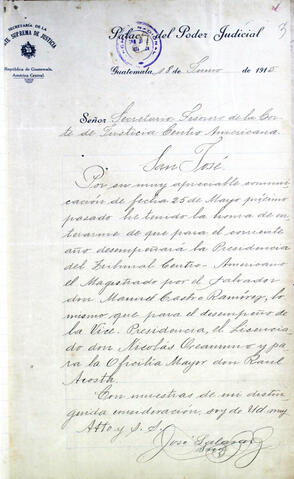 SECRETARÍA DE LA
CORTE SUPREMA DE JUSTICIA
República de Guatemala,
América Central.
Palacio del Poder Judicial
Guatemala, 18 de Junio de 1915
Señor Secretario Tesorero de la Cor
te de Justicia Centro Americana.
San José.
Por su muy apreciable comuni-
cación de fecha 25 de Mayo próximo
pasado he tenido la honra de en-
terarme de que para el corriente
año desempeñará la Presidencia
del Tribunal Centro-Americano
el Magistrado por el Salvador
don Manuel Castro Ramírez, lo
mismo que para el desempeño de
la Vice-Presidencia, el Licencia-
do don Nicolás Oreamuno y pa
ra la Oficialía Mayor don Raul
Acosta.
Con muestras de mi distin-
guida consideración, soy de Ud. muy
Atto y S. S.
José Salazar